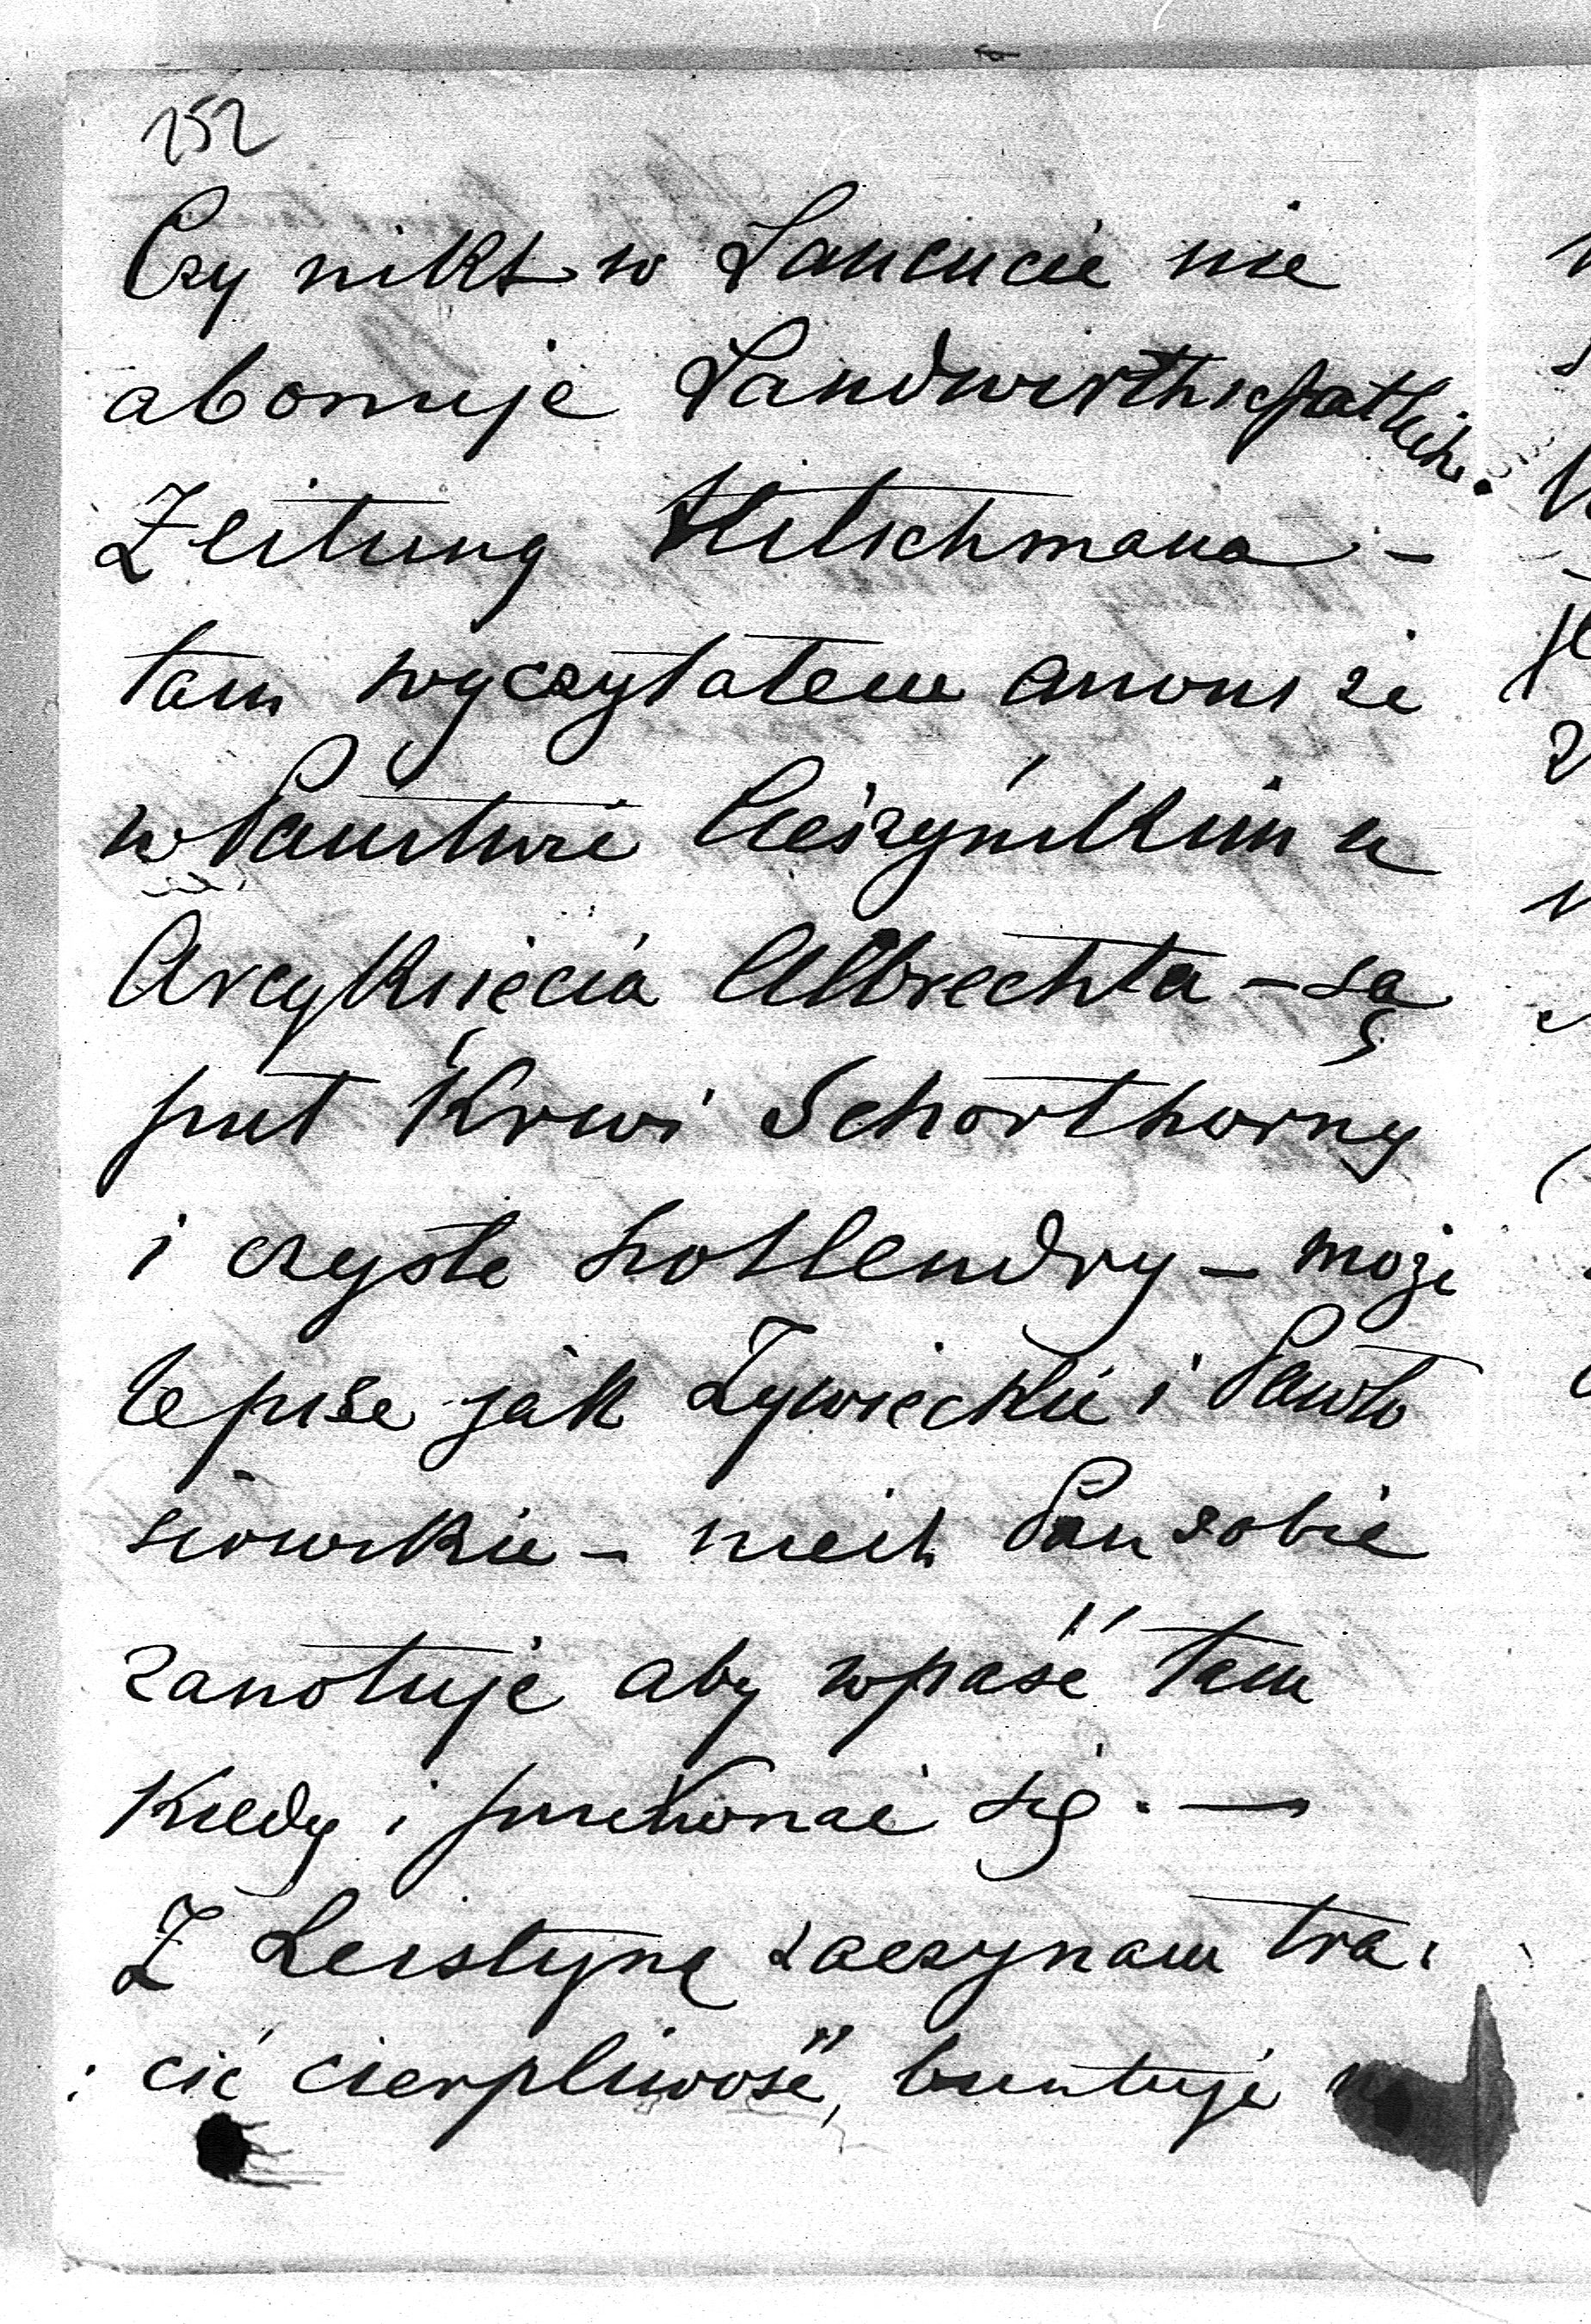 252
Czy nikt w Łancucie nie
abonuje Landwirthschatlich.
Zeitung Hitschmana –
tam wyczytałem anons że
w Państwie Cieszyńskim u
Arcyksięcia Albrechta – są
puł krwi Schorthorny
i czyste hollendry – może
lepsze jak Żywieckie i Pawło
siowskie – niech Pan sobie
zanotuje aby wpaść tam
kiedy i przekonać się. —
Z Leistyną zaczynam tra-
: cić cierpliwość, buntuje